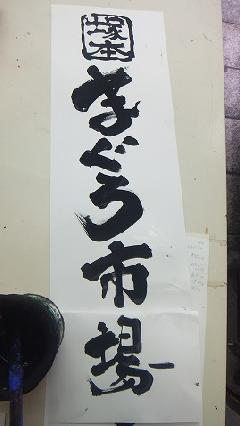 塚本
まぐろ市場